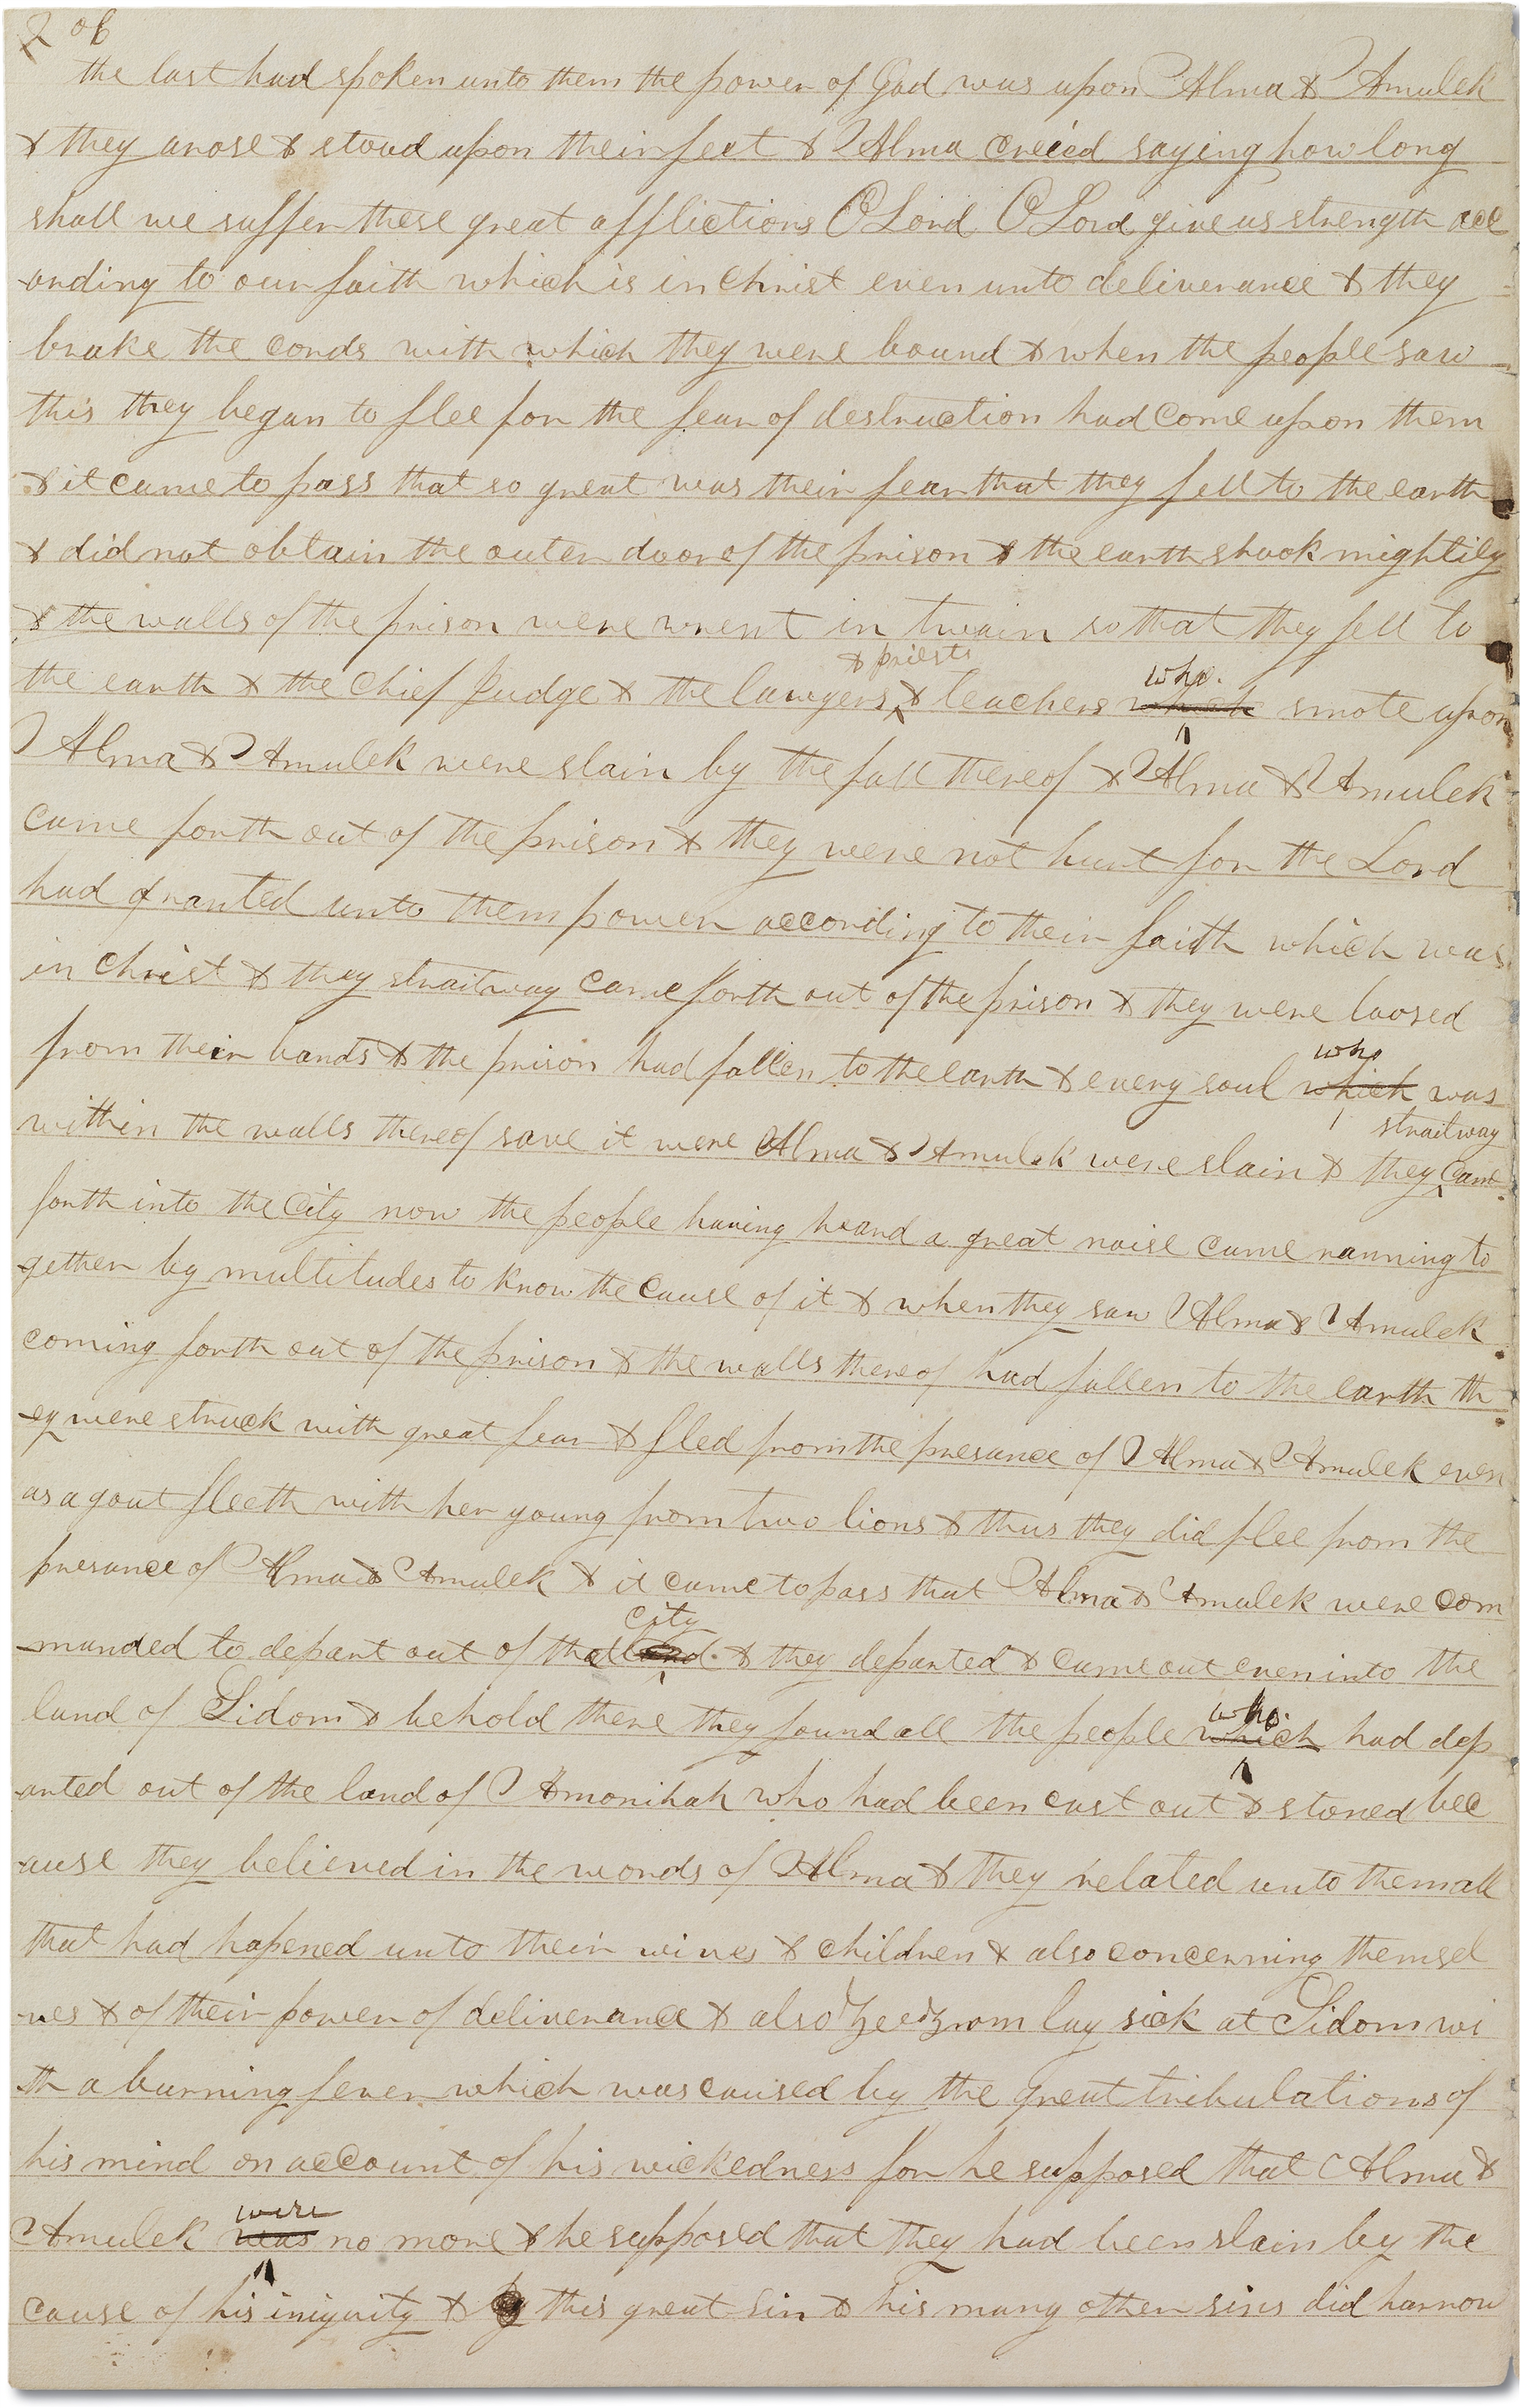 206
the last had spoken unto them the power of God was upon Alma & Amulek
& they arose & stood upon their feet & Alma creied saying how long
shall we suffer these great afflictions O Lord O Lord give us strength acc
-ording to our faith which is in Christ even unto deliverance & they
brake the cords with which they were bound & when the people saw
this they began to flee for the fear of destruction had come upon them
& it came to pass that so great was their fear that they fell to the earth
& did not obtain the outer door of the prison & the earth shook mightily
& the walls of the prison were wrent in twain so that they fell to
& priests who.
the earth & the chief Judge & the lawyers & teachers which smote upon
Alma & Amulek were slain by the fall thereof & Alma & Amulek
came forth out of the prison & they were not hurt for the Lord
had granted unto them power according to their faith which was
in Christ & they straitway came forth out of the prison & they were loosed
who
from their bands & the prison had fallen to the earth & every soul which was
straitway
within the walls thereof save it were Alma & Amulek were slain & they came
forth into the City now the people having heard a great noise came running to
-gether by multitudes to know the cause of it & when they saw Alma & Amulek
coming forth out of the prison & the walls thereof had fallen to the earth th
-ey were struck with great fear & fled from the presance of Alma & Amulek even
as a goat fleeth with her young from two lions & thus they did flee from the
presance of Alma & Amulek & it came to pass that Alma & Amulek were com
city
-manded to depart out of that land. & they departed & came out even into the
who.
land of Sidom & behold there they found all the people which had dep
-arted out of the land of Amonihah who had been cast out & stoned bec
-ause they believed in the words of Alma & they related unto them all
that had hapened unto their wives & children & also concerning themsel
-ves & of their power of deliverance & also Zeezrom lay sick at Sidom wi
-th a burning fever which was caused by the great tribulations of
his mind on account of his wickedness for he supposed that Alma &
were
Amulek was no more & he supposed that they had been slain by the
cause of his iniquity & this great sin & his many other sins did harrow